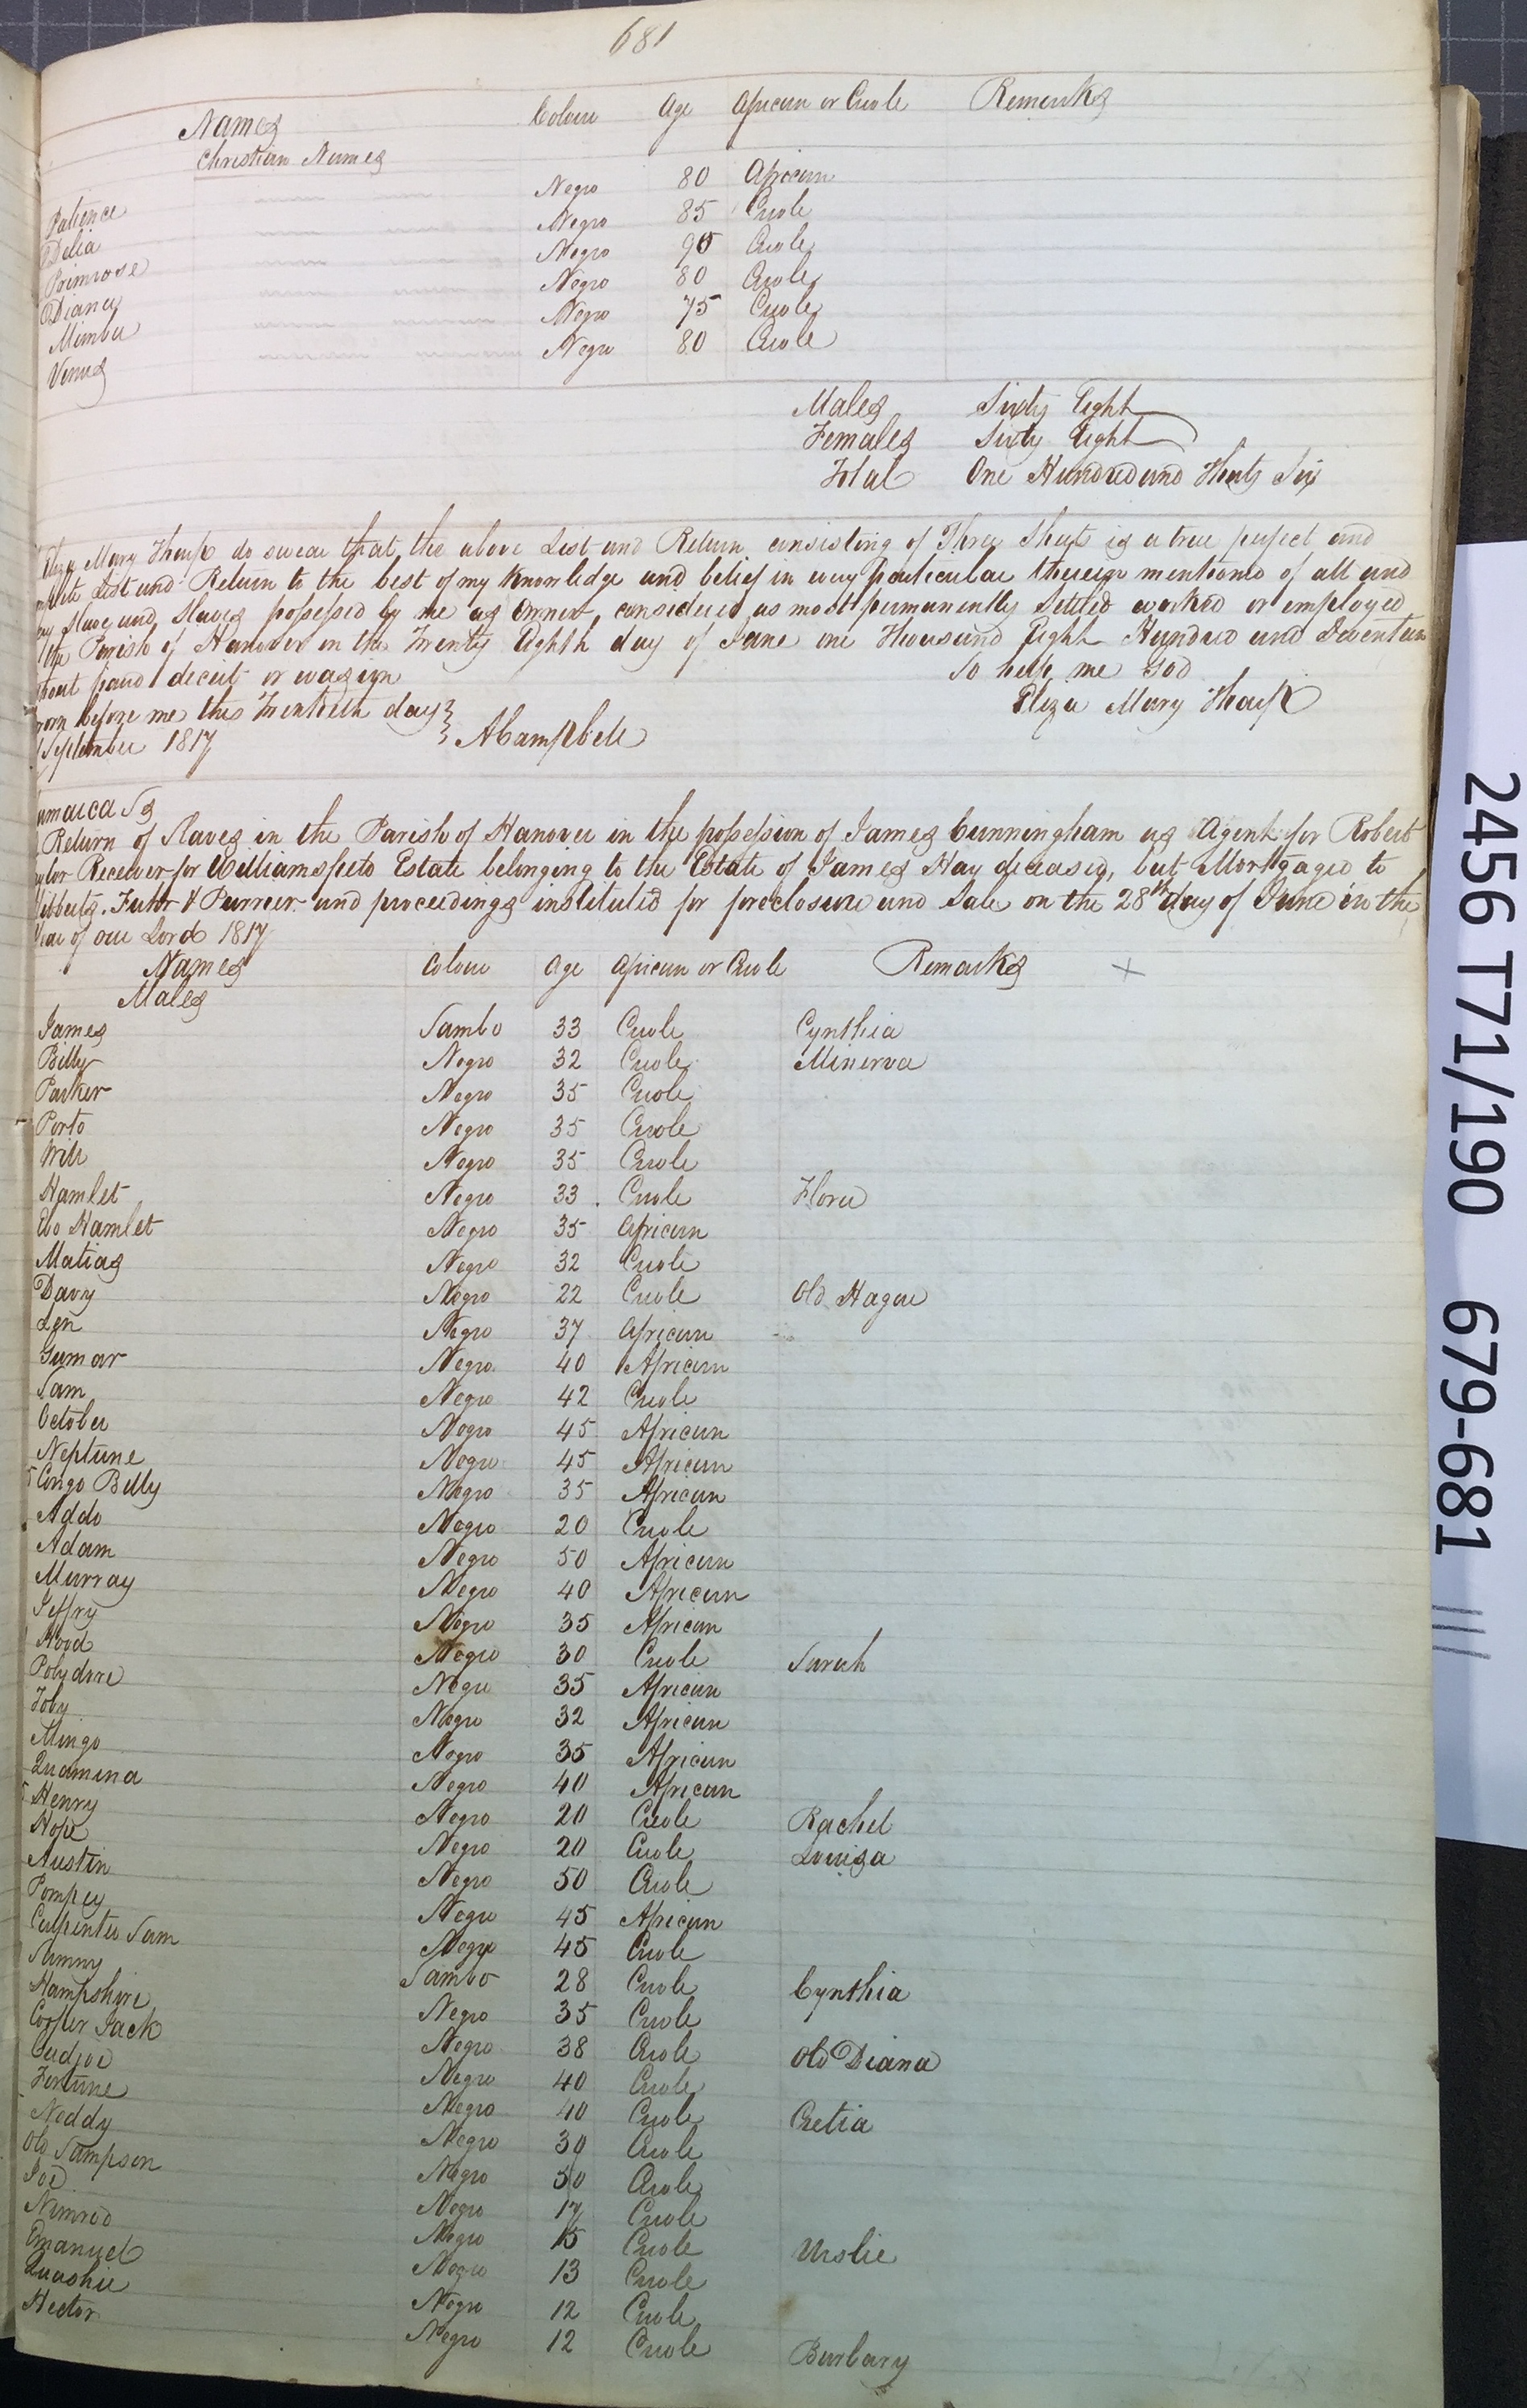 681
Names Colour Age African or Creole Remarks
Christian Names
Patience Negro 80 African
Delia Negro 85 Creole
Primrose Negro 90 Creole
Diancy Negro 80 Creole
Mimba Negro 75 Creole
Venus Negro 80 Creole
Males Sixty Eight
Females Sixty Eight
Total One Hundred and Thirty Six
Eliza Mary Tharp do swear that the above List and Return consisting of Three Sheets is a true perfect and
List and Return to the best of my Knowledge and belief in every particular therein mentioned of all and
Slave and Slaves possessed by me as Owner, considered as most permanently settled worked or employed
the Parish of Hanover on the Twenty Eighth day of June one Thousand Eight Hundred and Seventeen
fraud deceit or evasion So help me God
before me this Twentieth day } Eliza Mary Tharp
September 1817 } ACampbell
Jamaica Ss
Return of Slaves in the Parish of Hanover in the possession of James Cunningham as Agent for Robert
Receiver for Williamsfield Estate belonging to the Estate of James Hay deceased, but Mortgaged to
Hibberts. Fuhr & Purrier and proceedings instituted for foreclosure and Sale on the 28th day of June in the
Year of our Lord 1817
Names Colour Age African or Creole Remarks X
Males
James Sambo 33 Creole Cynthia
Billy Negro 32 Creole Minerva
Parker Negro 35 Creole
Porto Negro 35 Creole
Will Negro 35 Creole
Hamlet Negro 33 Creole Flora
Ebo Hamlet Negro 35 African
Matias Negro 32 Creole
Davy Negro 22 Creole Old Hagar
Len Negro 37 African
Gumar Negro 40 African
Sam Negro 42 Creole
October Negro 45 African
Neptune Negro 45 African
Congo Billy Negro 35 African
Addo Negro 20 Creole
Adam Negro 50 African
Murray Negro 40 African
Jeffry Negro 35 African
Hood Negro 30 Creole Sarah
Polydore Negro 35 African
Toby Negro 32 African
Mingo Negro 35 African
Quamina Negro 40 African
Henry Negro 20 Creole Rachel
Hope Negro 20 Creole Louisa
Austin Negro 50 Creole
Pompey Negro 45 African
Carpenter Sam Negro 45 Creole
Sammy Sambo 28 Creole Cynthia
Hampshire Negro 35 Creole
Cooper Jack Negro 38 Creole Old Diana
Cudjoe Negro 40 Creole
Fortune Negro 40 Creole Cretia
Neddy Negro 30 Creole
Old Sampson Negro 50 Creole
Joe Negro 17 Creole
Nimrod Negro 15 Creole Urslie
Emanuel Negro 13 Creole
Quashie Negro 12 Creole
Hector Negro 12 Creole Barbary
2456 T71/190 679-681